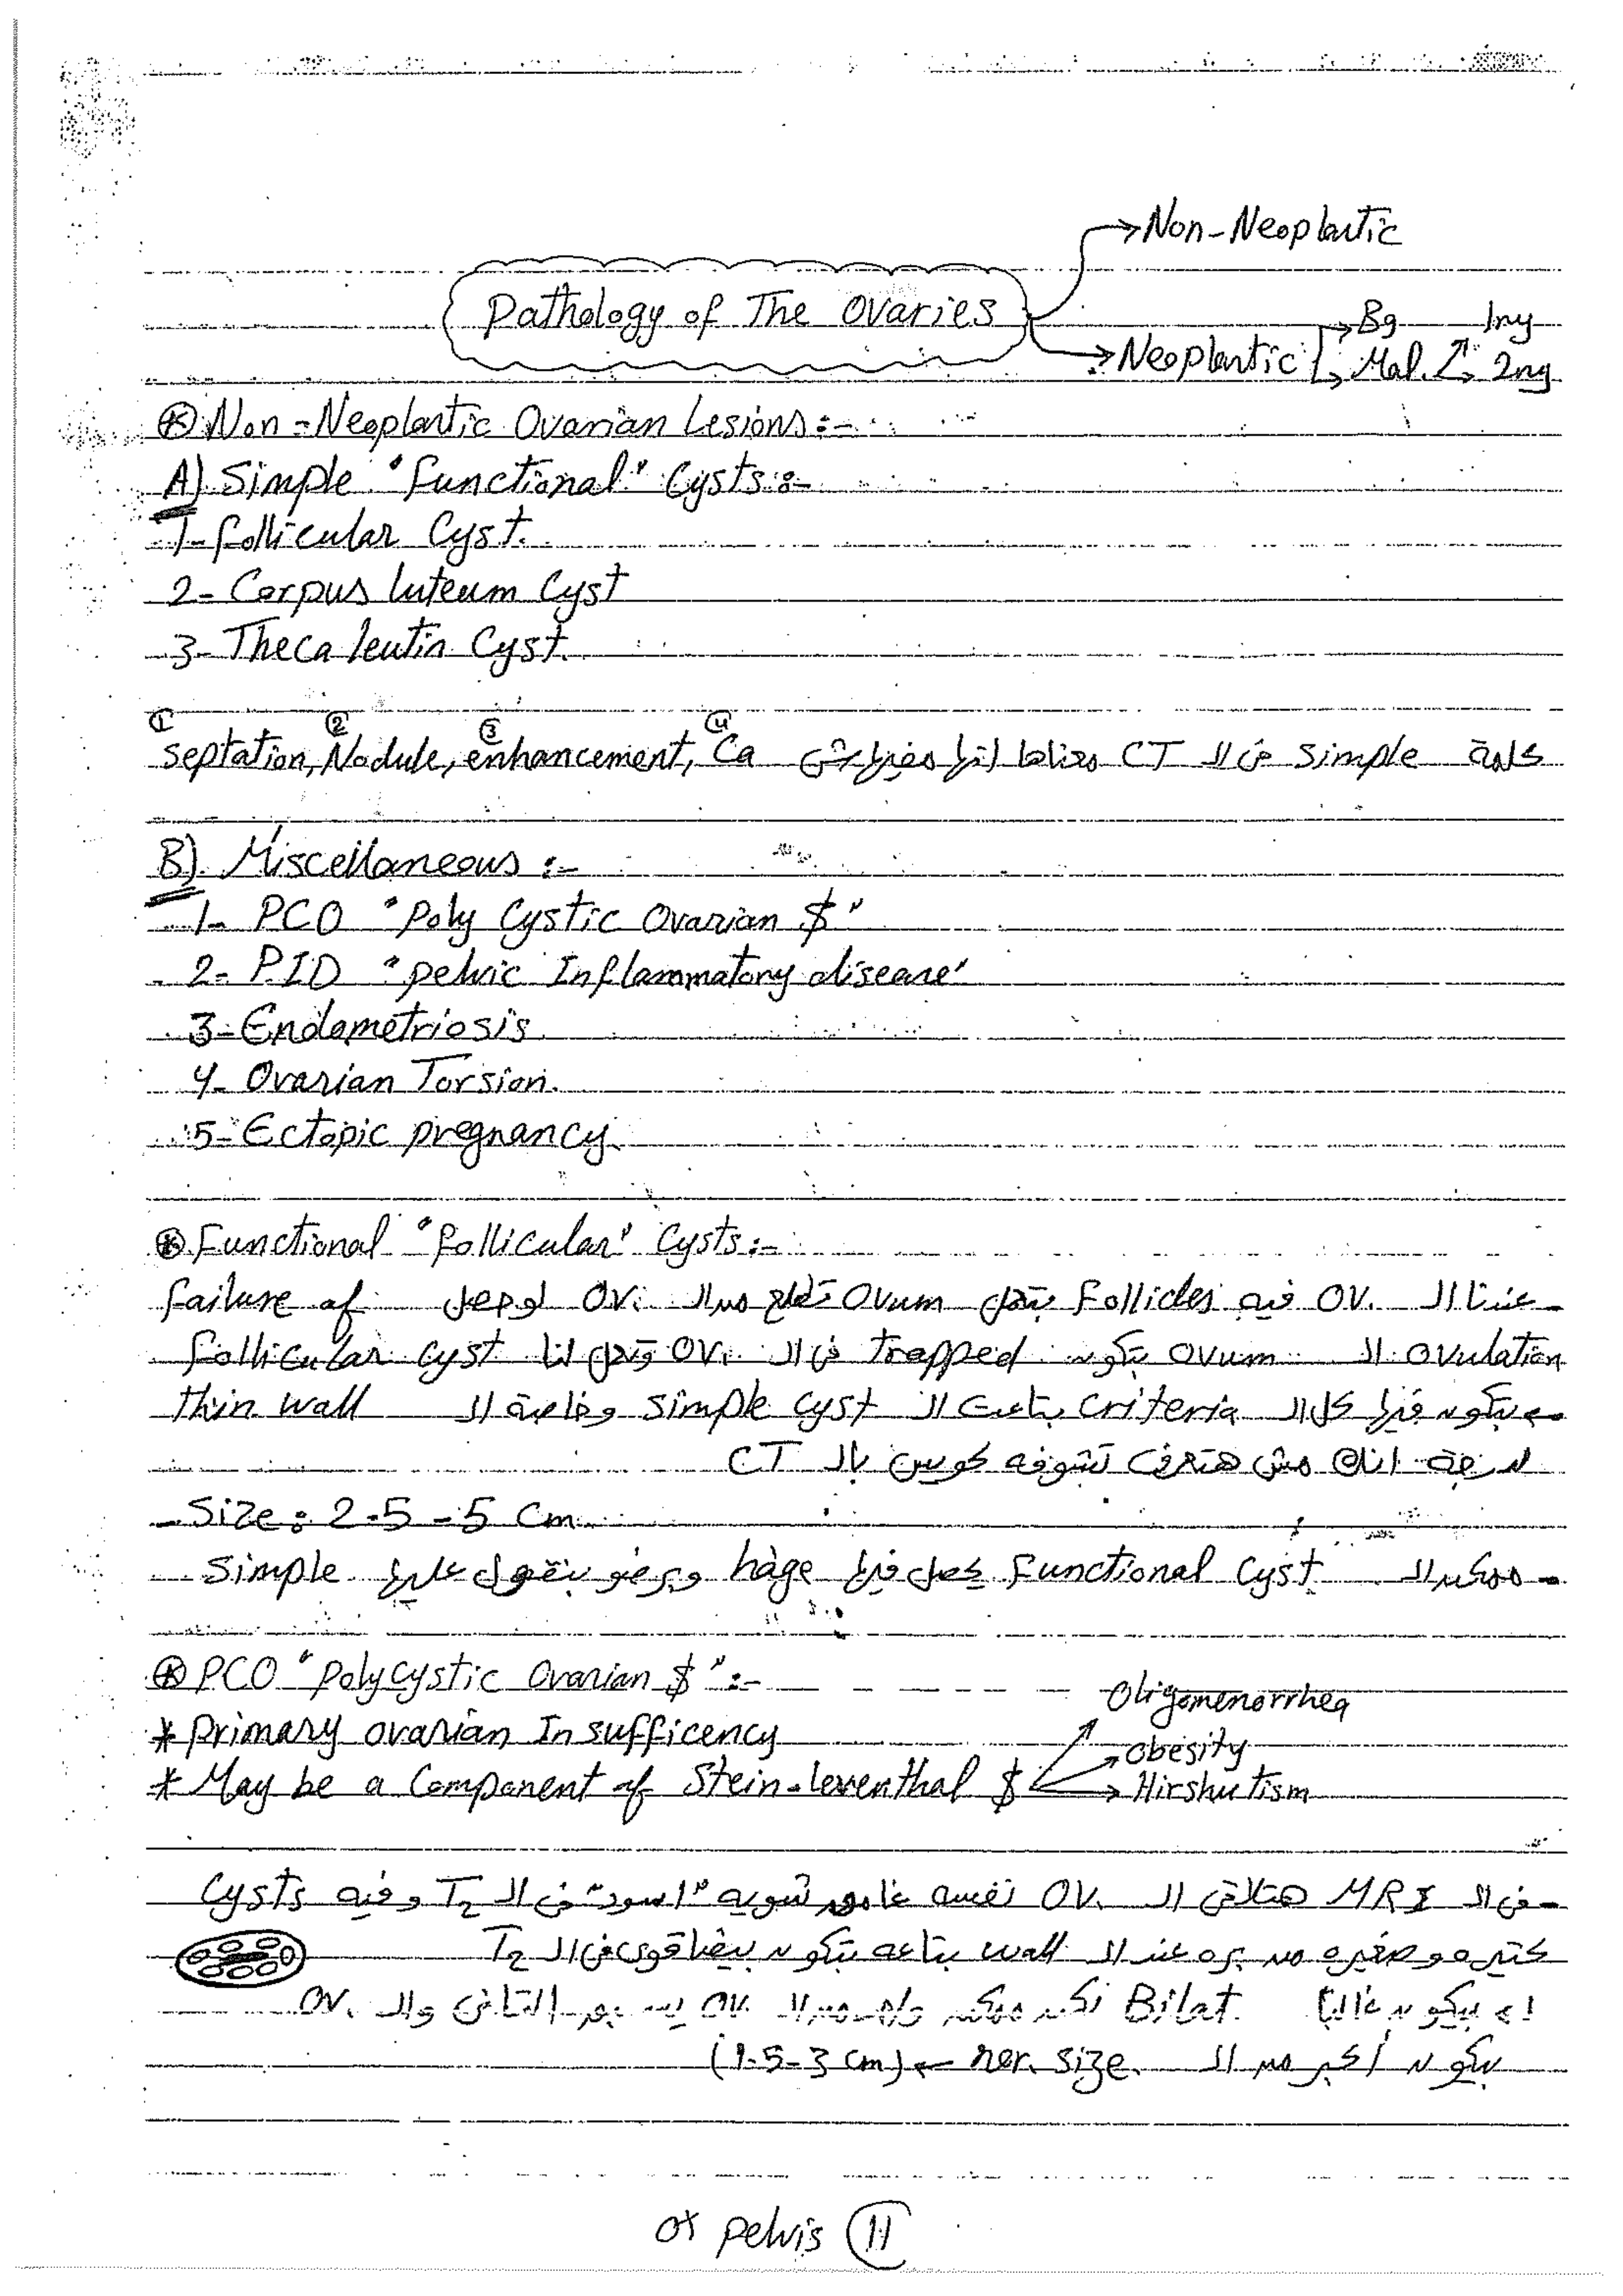 → Non-Neoplastic
Pathology of The Ovaries
→ Bg 1ry
→ Neoplastic → Mal. → 2ry
⊛ Non-Neoplastic Ovarian Lesions:-
A) Simple "Functional" Cysts:-
1- follicular Cyst.
2- Corpus luteum Cyst
3- Theca leutin Cyst.
① ② ③ ④
كلمة simple في الـ CT معناها إنها مفيهاش septation, Nodule, enhancement, Ca
B) Miscellaneous :-
1- PCO "Poly Cystic Ovarian $"
2- PID "pelvic Inflammatory disease"
3- Endometriosis
4- Ovarian Torsion.
5- Ectopic pregnancy.
⊛ Functional "follicular" Cysts:-
- عندنا الـ OV. فيه Follicles بتحل Ovum تطلع من الـ OV. لو حصل failure of
ovulation الـ ovum بتكون trapped في الـ OV. وتعمل لنا follicular cyst
→ بتكون فيها كل الـ criteria بتاعت الـ simple cyst وخاصة الـ thin wall
لدرجة انك مش هتعرف تشوفه كويس بالـ CT
- Size: 2.5 - 5 Cm.
- ممكن الـ Functional Cyst يحصل فيها hàge وبرضو بنقول عليها Simple
⊛ PCO "Polycystic Ovarian $" :-
Oligomenorrhea
* Primary ovarian Insufficency
→ obesity
* May be a Component of Stein-leventhal $ → Hirshutism
- في الـ MRI هتلاقي الـ OV. نفسه غامق شويه "اسود" في الـ T2 وفيه Cysts
كتيره وصغيره من بره عند الـ wall بتاعه بتكون بيضا قوى في الـ T2
بيكون غالبا Bilat. لكن ممكن واحد من الـ OV. التاني والـ OV.
بيكون أكبر من الـ nor. size. ← (1.5-3 cm)
pelvis 11